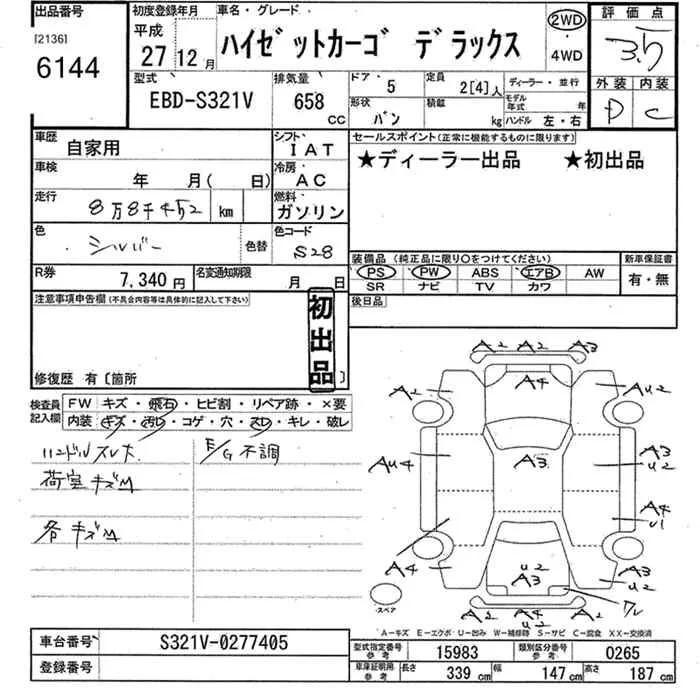 出品番号
[2136]
6144
初度登録年月
平成
27 12月
車名・グレード
ハイゼットカーゴ デラックス
2WD
・
4WD
評価点
3.5
外装 内装
D C
型式
EBD-S321V
排気量
658
CC
ドア・ 5
形状 バン
定員 2[4]人
積載 kg
ディーラー・並行
モデル年式 年
ハンドル 左・右
車歴 自家用
シフト・ IAT
車検 年 月( 日)
冷房・ AC
走行 8万8千452 km
燃料・ ガソリン
色 シルバー 色替
色コード S28
R券 7,340 円
名変通知期限 月 日
セールスポイント(正常に機能するものに限ります)
★ディーラー出品 ★初出品
装備品(純正品に限り○をつけてください)
PS PW ABS エアB AW
SR ナビ TV カワ
新車保証書
有・無
後日品
注意事項申告欄(不具合内容等は具体的に記入して下さい)
初出品
修復歴 有〔箇所 〕
検査員記入欄
FW キズ・飛石・ヒビ割・リペア跡・×要
内装 キズ・汚レ・コゲ・穴・スレ・キレ・破レ
ハンドルスレ大
E/G不調
荷室キズM
各キズM
A2 A2 A3
A4
A2 AU2
A3
AU4
A3
U2
A4
U1
A4
U2
A3
A3
U2
スペア
A2 A4 A2
U2
ワレ
A-キズ E-エクボ U-凹み W-補修跡 S-サビ C-腐食 XX-交換済
車台番号 S321V-0277405
登録番号
型式指定番号 参考 15983
類別区分番号 参考 0265
車庫証明用 参考 長さ 339 cm 幅 147 cm 高さ 187 cm